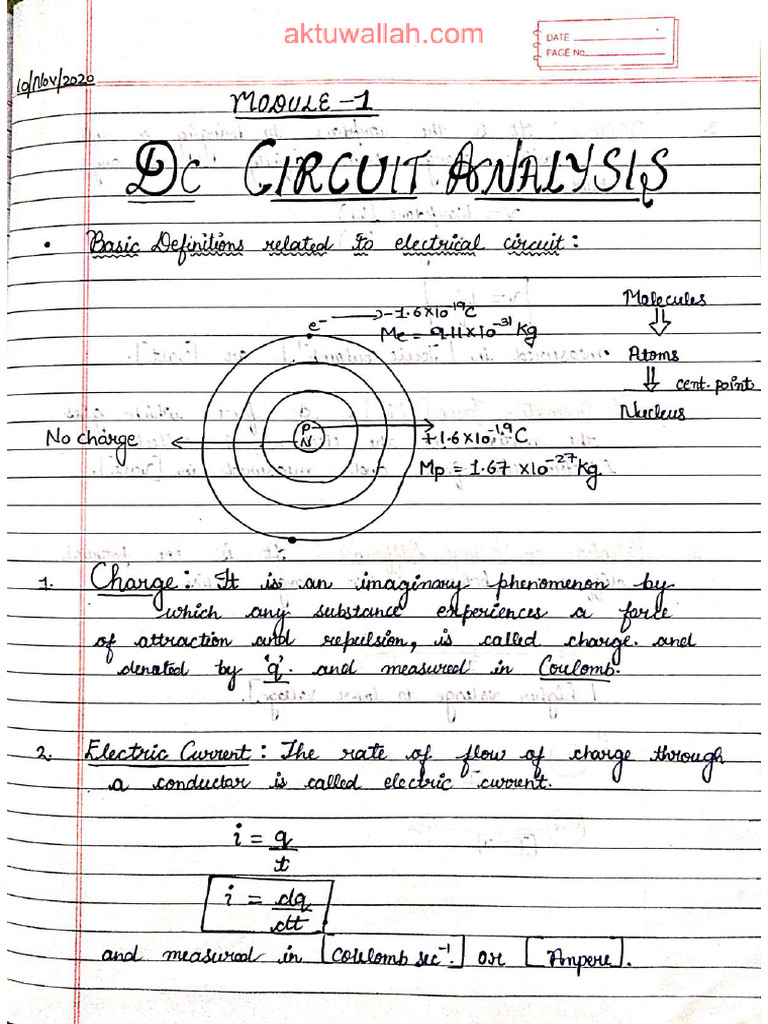 aktuwallah.com
DATE
PAGE No.
10/Nov/2020
MODULE-1
DC CIRCUIT ANALYSIS
• Basic Definitions related to electrical circuit:
e⁻ → -1.6×10⁻¹⁹C
Me = 9.11×10⁻³¹ Kg
Molecules
⇓
Atoms
⇓ cent. point
Nucleus
No charge
P
N
+1.6×10⁻¹⁹C
Mp = 1.67×10⁻²⁷Kg.
1. Charge: It is an imaginary phenomenon by
which any substance experiences a force
of attraction and repulsion, is called charge. and
denoted by 'q'. and measured in Coulomb.
2. Electric Current: The rate of flow of charge through
a conductor is called electric current.
i = q/t
i = dq/dt
and measured in [Coulomb sec⁻¹.] or [Ampere].